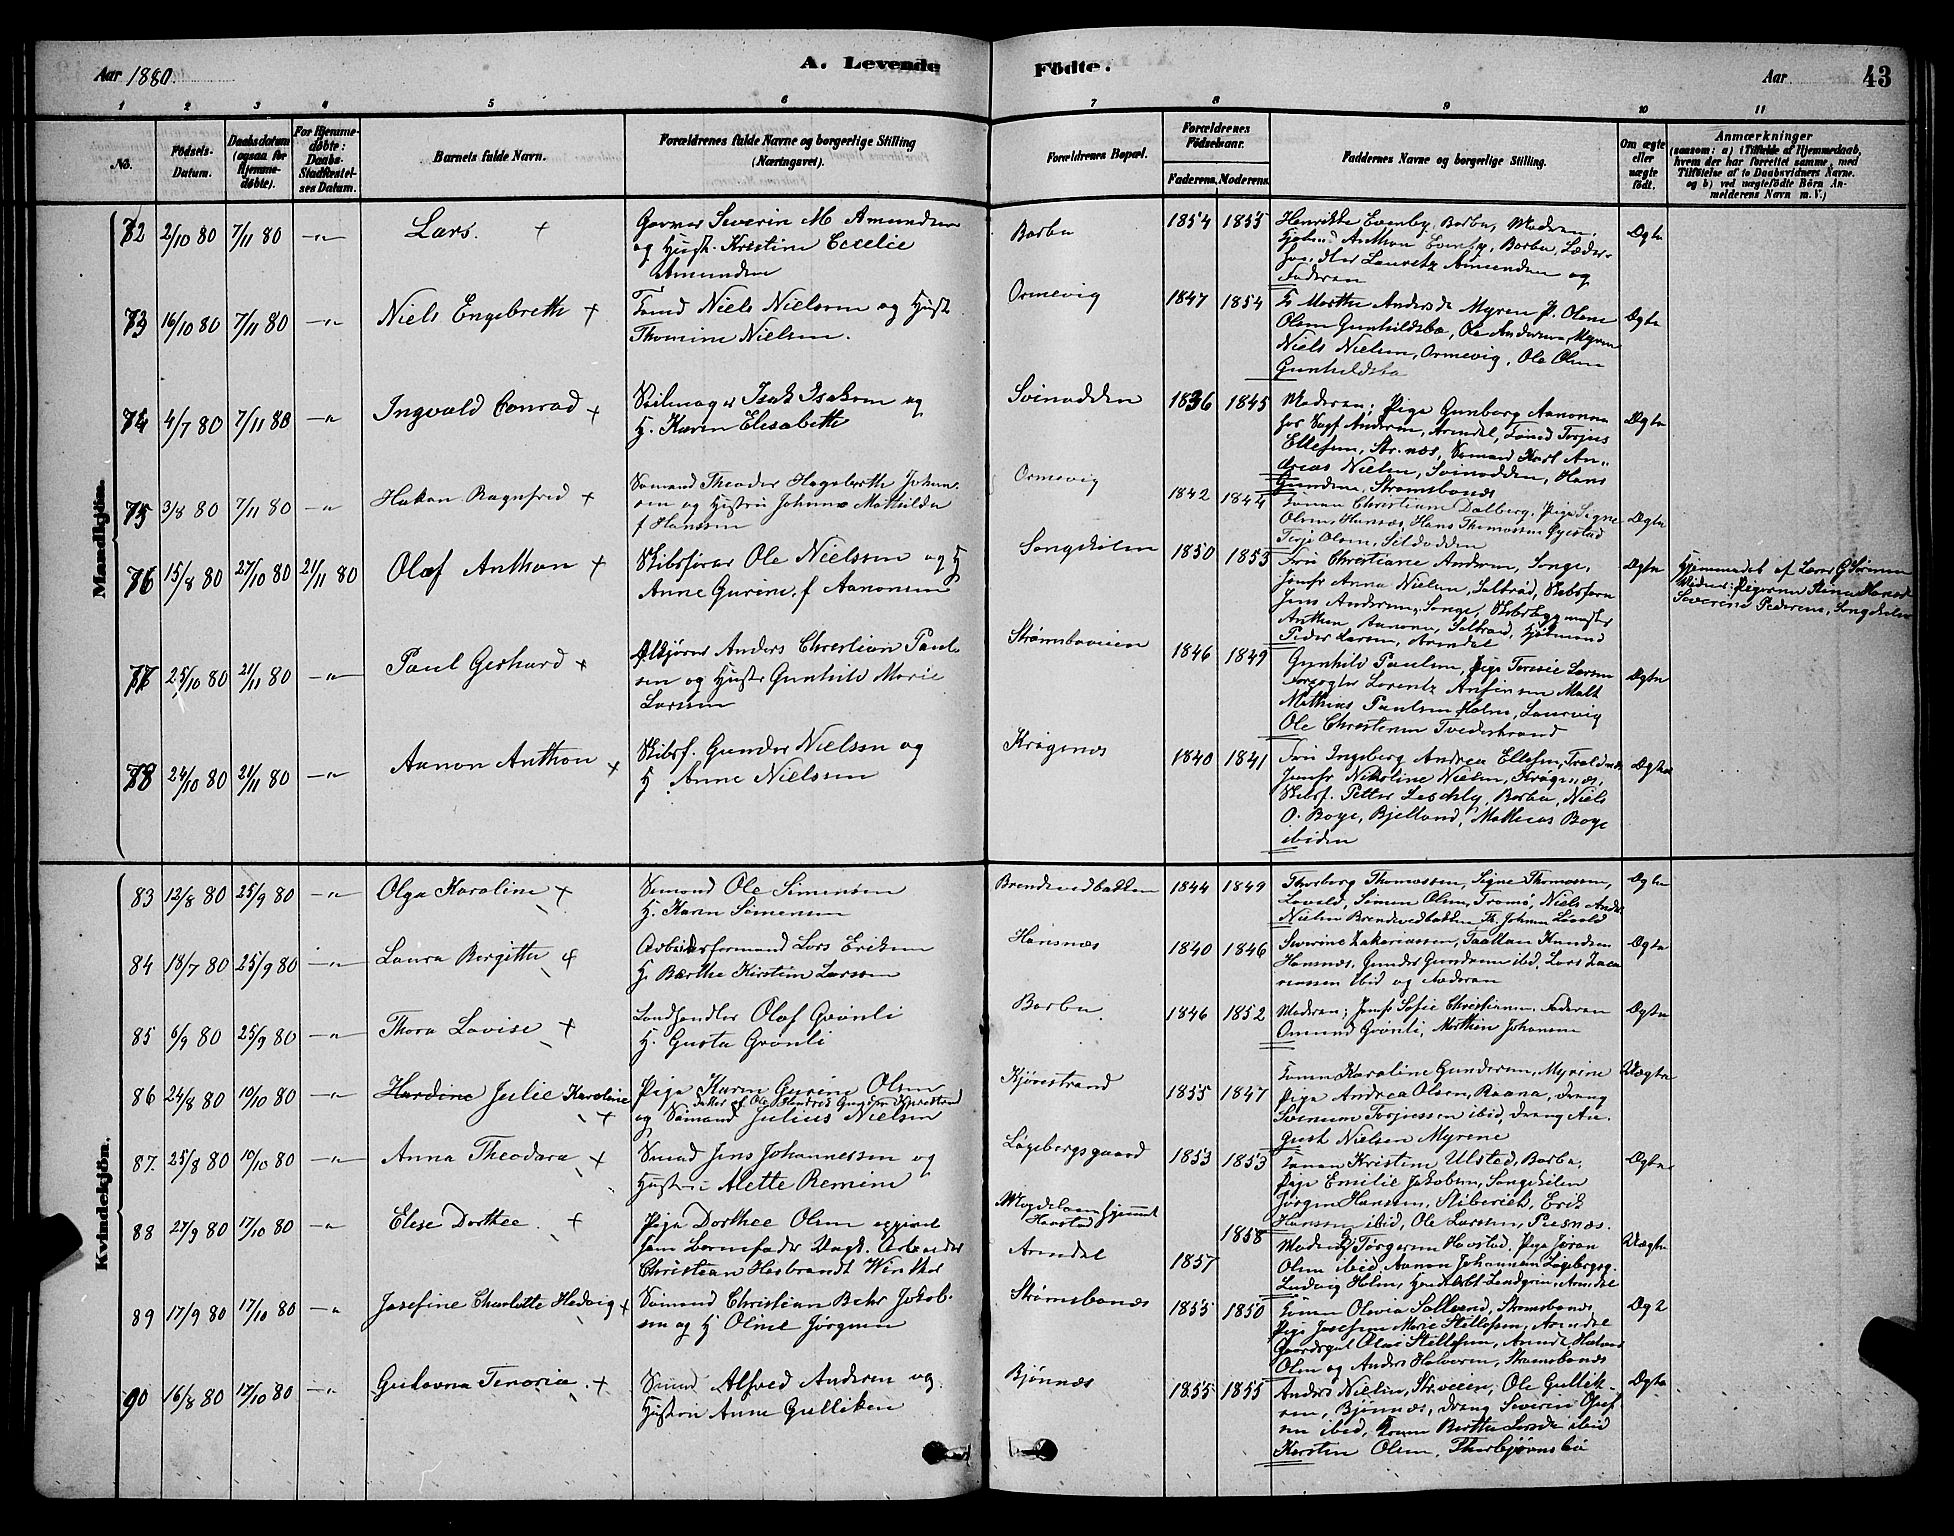 Aar 1880.
A. Levende
Födte.
Aar
43
1 2 3 4 5 6 7 8 9 10 11
No.
Födsels-Datum.
Daabsdatum (ogsaa for Hjemmedøbte).
For Hjemmedøbte: Daabs-Stadfæstelses Datum.
Barnets fulde Navn.
Forældrenes fulde Navne og borgerlige Stilling (Næringsvei).
Forældrenes Bopæl.
Forældrenes Födselsaar.
Faderens. Moderens.
Faddernes Navne og borgerlige Stilling.
Om ægte eller uægte født.
Anmærkninger
(saasom: a) i Tilfælde af Hjemmedaab,
hvem der har forrettet samme, med
Tilföielse af to Daabsvidners Navne.
og b) ved uægtefödte Börn An-
melderens Navn m. V.)
Mandkjön.
72 2/10 80 7/11 80 Lars. +
Severin M Amundsen
og Hust. Kristine Cecelie
Amundsen
Barbu 1854 1855
Henrikke Evenby, Barbu, Moderen,
Anthon Evenby, Barbu,
Lauretz Amundsen og
Faderen
Ægte
73 16/10 80 7/11 80 Niels Engebreth +
Tømd Niels Nielsen og Hust
Thomine Nielsen.
Ormevig 1847 1854
Marthe Andersd Myren P. Oline
Olsen Gunhildsbo, Ole Andersen Myren
Niels Nielsen, Ormevig, Ole Olsen
Gunhildsbo
Ægte
74 4/7 80 7/11 80 Ingvald Conrad +
Seilmager Isak Isaksen og
H. Karen Elisabeth
Svinodden 1836 1845
Moderen; Pige Gunborg Aanonsen
hos Andersen, Arendal, Tømd Torjus
Ellefsen, Str.næs, Sømand Karl An-
dreas Nielsen, Svinodden, Hans
Gundersen, Strømsbonæs
Ægte
75 3/8 80 7/11 80 Hakon Ragnfred +
Sømand Theodor Hagebarth Johan-
sen og Hustru Johanne Mathilde
f Hanssen
Ormevig 1842 1844
Christiane Dalberg, Pige Signe
Olsen Hansnæs, Hans Thomassen
Terje Olsen, Sildodden
Ægte
76 15/8 80 27/10 80 21/11 80 Olaf Anthon +
Skibsfører Ole Nielssen og H
Anne Gurine f Aanonsen
Songekilen 1850 1853
Fru Christiane Andersen, Songe,
Jomfr Anna Nielsen, Saltrød, Skibsfører
Jens Andersen, Songe, Skibsbyggmester
Anthon Aanons, Saltrød,
Peder Larsen, Arendal
Ægte
Hjemmedøbt af Lærer G Sørensen
Severine Pedersen, Songekilen
77 25/10 80 21/11 80 Paul Gerhard +
Anders Christian Paul-
sen og Hustr Gunhild Marie
Larssen
Strømsboveien 1846 1849
Gunhild Paulsen, Pige Teresie Larsen
Lorentz Anfinsen Malt
Mathias Paulsen Holm, Laurvig
Ole Christensen Tvedestrand
Ægte
78 24/10 80 21/11 80 Aanon Anthon +
Skibsf. Gunder Nielssn og
H. Anne Nielssen
Krøgenæs 1840 1841
Fru Ingeborg Andrea Ellefsen,
Jomfr Nikoline Nielsen, Krøgenæs,
Skibsf. Petter Leschly, Barbu, Niels
O. Boye, Bjelland, Mathias Boye
ibiden
Ægte
Kvindekjön.
83 12/8 80 25/9 80 Olga Karoline +
Sømand Ole Simonsen
H. Karen Simensen
Brendevedbakken 1844 1849
Thorborg Thomassen, Signe Thomassen,
Lovold, Simon Olsen, Tromø, Niels Ander
Nielsen Brendevedbakken Th. Johnsen Lovold
Ægte
84 18/7 80 25/9 80 Laura Bergitte +
Arbeidsformand Lars Eriksen
H. Barthe Kirstine Larssen
Hansnæs 1840 1846
Severine Zakariassen, Knudsen
Hansnæs, Gunder Gundersen ibid, Lars Zaca-
riassen ibid og Faderen
Ægte
85 6/9 80 25/9 80 Thora Lovise +
Landhandler Olaf Grønli
H. Gusta Grønli
Barbu 1846 1852
Moderen; Jomfr Sofie Christiansen, Faderen
Omund Grønli, Morthen Johansen
Ægte
86 24/8 80 10/10 80 Hardine Julie Karoline +
Pige Karen Gurine Olsen
Datter af Ole Gunders Kjørestrand
og Sømand Julius Nielsen
Kjørestrand 1855 1847
Karoline Gundersen, Myrene
Pige Andrea Olsen, Raana, Dreng
Torjussen ibid, dreng Au-
gust Nielsen Myrene
Uægte
87. 25/8 80 10/10 80 Anna Theodora +
Sømd Jens Johannessen og
Hustru Alette Remine
Løgebergsgaard 1853 1853
Kristine Ulsted, Barbu,
Pige Emilie Jakobsen, Songekilen
Jørgen Hansen, Stiberiet, Erik
Hanssen ibid, Ole Larssen, Puesnæs.
Ægte
88 27/9 80 17/10 80 Elise Dorthee. +
Pige Dorthee Olsen opgivet
som Barnefader Ungk. Arbeider
Christian Hesbrandt Winther
Havstad
Arendal 1857 1858
Moderen, Torgersen Havstad, Pige Joran
Olsen ibid Aanon Johannsen Løgebergsg.
Ludvig Holm, Lundgren, Arendal
Uægte
89 17/9 80 17/10 80 Josefine Charlotte Hedvig +
Sømand Christian Behr Jakob-
sen og H Oline Jørgensen
Strømsbonæs 1855 1850
Olevia Sollvend, Strømsbonæs,
Pige Josefine Marie Stellefsen, Arendal
Gaardsgut Olaus Stellefsen, Arendal, Halvor
Olsen og Anders Halvorsen, Strømsbonæs
Ægt
90 16/8 80 17/10 80 Gustavna Tenoria. +
Sømd Alfred Andersen og
Hustru Anne Gulliksen
Bjønnæs 1855 1855
Anders Nielsen, Str.veien, Ole Gullik-
sen, Bjønnæs, dreng Severin Olsen
ibid, Berthe ibid
Kirsten Olsen, Thorbjørnsbo
Ægte